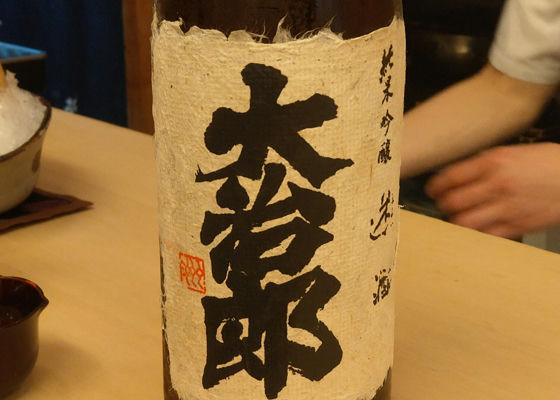 純米吟醸 酒
大治郎